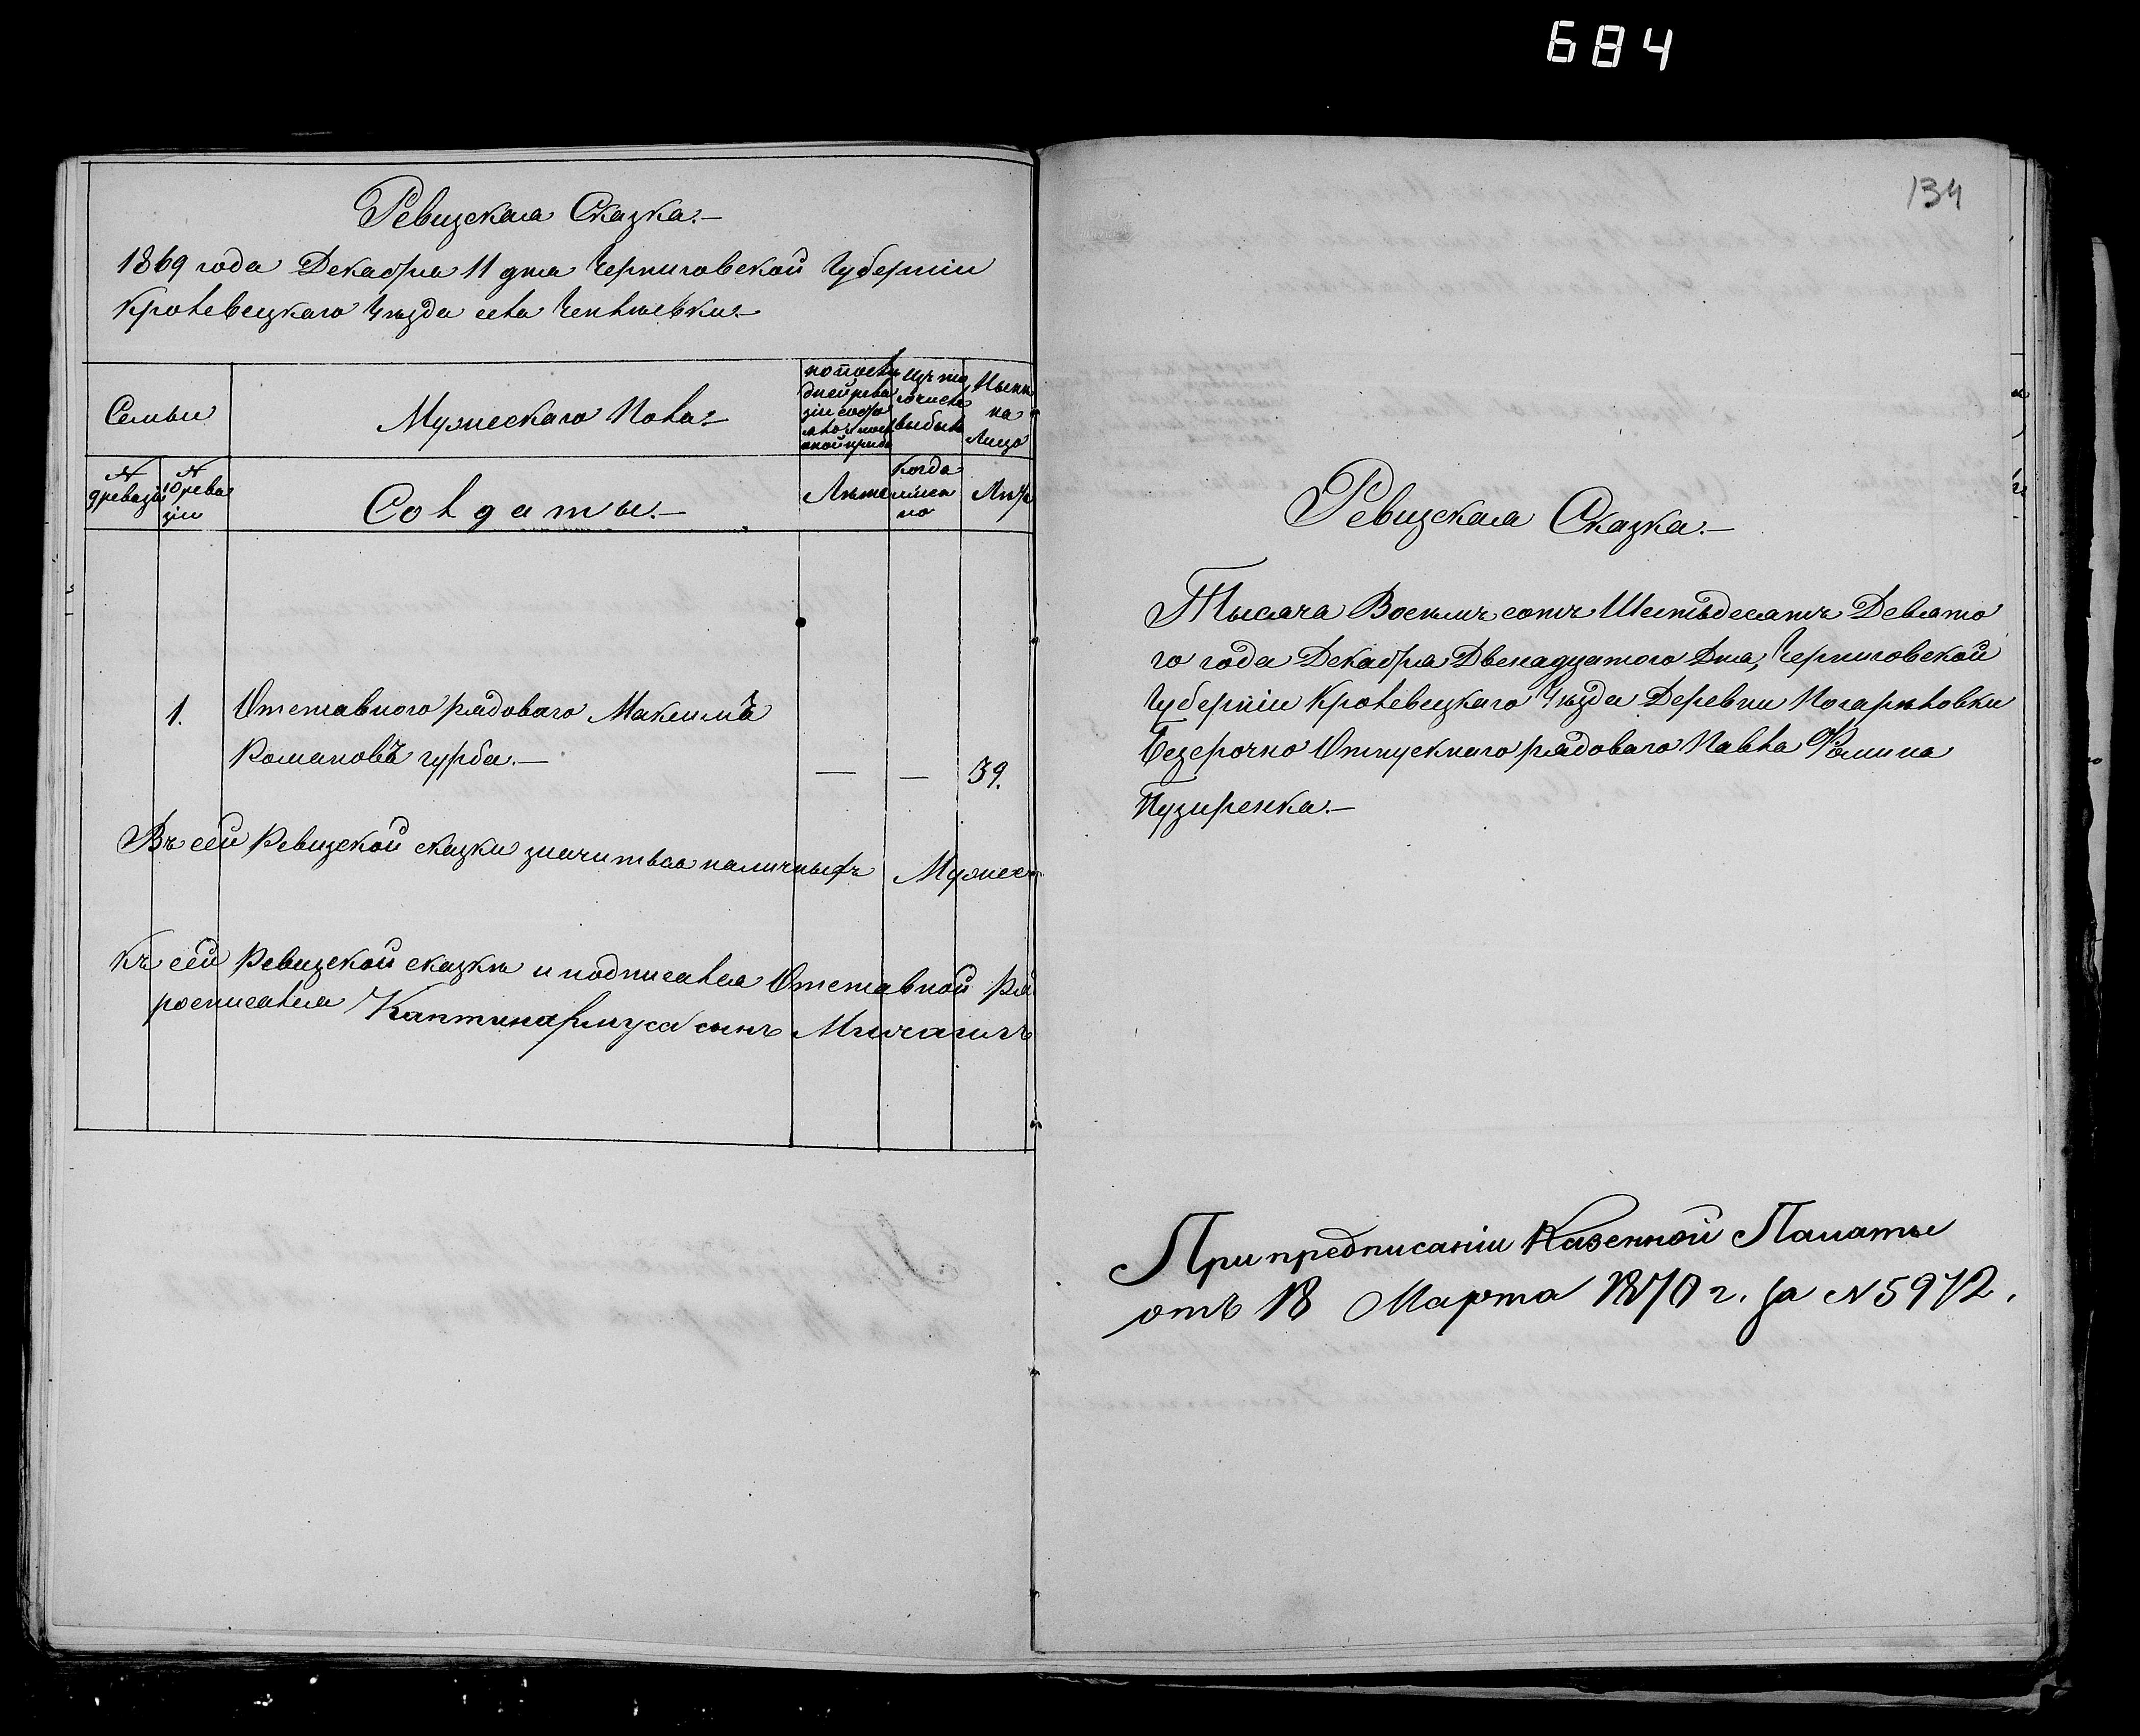 684
Ревизская Сказка.—
1869 года Декабря 11 дня Черниговской Губерніи
Кролевецкаго Уѣзда села Чепліевки.—
Семьи
Мужескаго Пола.—
по послѣ
дней реви
зіи состо
изъ то
го числа
выбыло
Нынѣ
на
Лицо
№
9 ревизіи
№
10 реви
зіи
Солдаты.—
Лѣта
Когда
имен
но
Лѣта
1. Отставного рядоваго Максимъ
Романовъ гурба.— — — 39.
Въ сей Ревизской сказки значиться наличныхъ Мужес
Къ сей Ревизской сказкѣ и подписался Отставной Ря
росписался Каптинармуса сынъ Михаилъ
134
Ревизская Сказка.—
Тысяча Восемъ сотъ Шестьдесятъ Девято
го года Декабря Двенадцатого Дня, Черниговской
Губерніи Кролевецкаго Уѣзда Деревни Погарѣловки
Безсрочно Отпускнаго рядоваго Павла Фомина
Пузиренка.—
При предписаніи Казенной Палаты
отъ 18 Марта 1870 г. за № 5972.